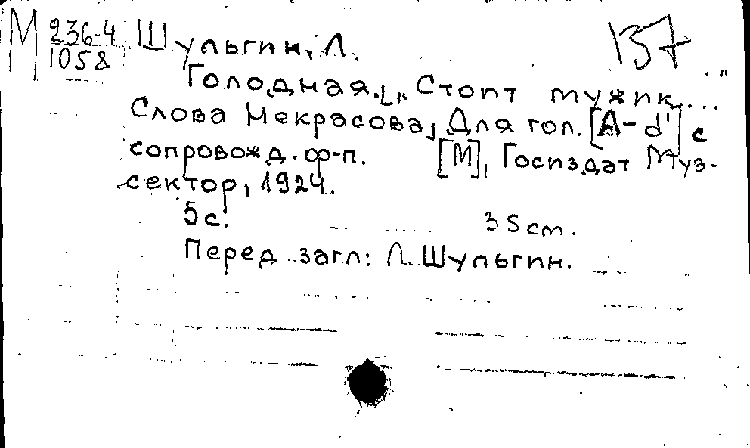 М 236-4 Шульгин, Л. 137
1058
Голодная. „Стоит мужик..."
Слова Некрасова, Для гол. [A-d'] с
сопровожд. ф-п. [М], Госиздат Муз-
сектор, 1924.
5 с. 35 cm.
Перед загл: Л. Шульгин.